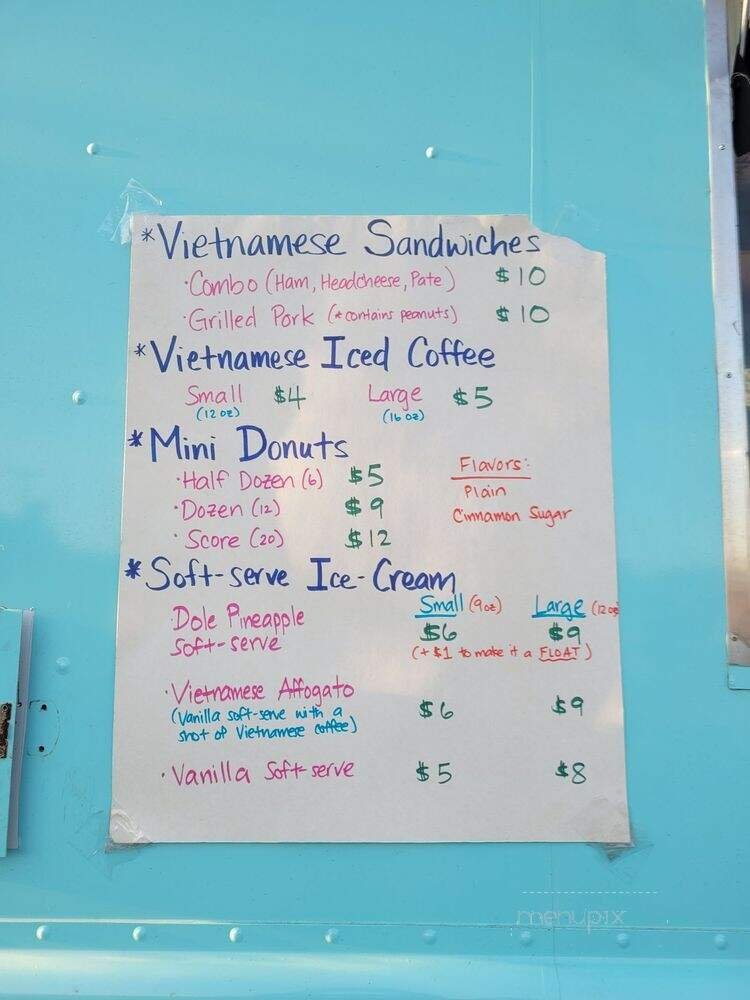 *Vietnamese Sandwiches
·Combo (Ham, Headcheese, Pate) $10
·Grilled Pork (*contains peanuts) $10
*Vietnamese Iced Coffee
Small $4 Large $5
(12 oz) (16 oz)
*Mini Donuts
·Half Dozen (6) $5
·Dozen (12) $9
·Score (20) $12
Flavors:
Plain
Cinnamon Sugar
*Soft-serve Ice-Cream
Small (9oz) Large (12 oz)
·Dole Pineapple
Soft-serve
$6 $9
(+ $1 to make it a FLOAT)
·Vietnamese Affogato
(Vanilla soft-serve with a
shot of Vietnamese coffee)
$6 $9
·Vanilla Soft-serve $5 $8
menupix